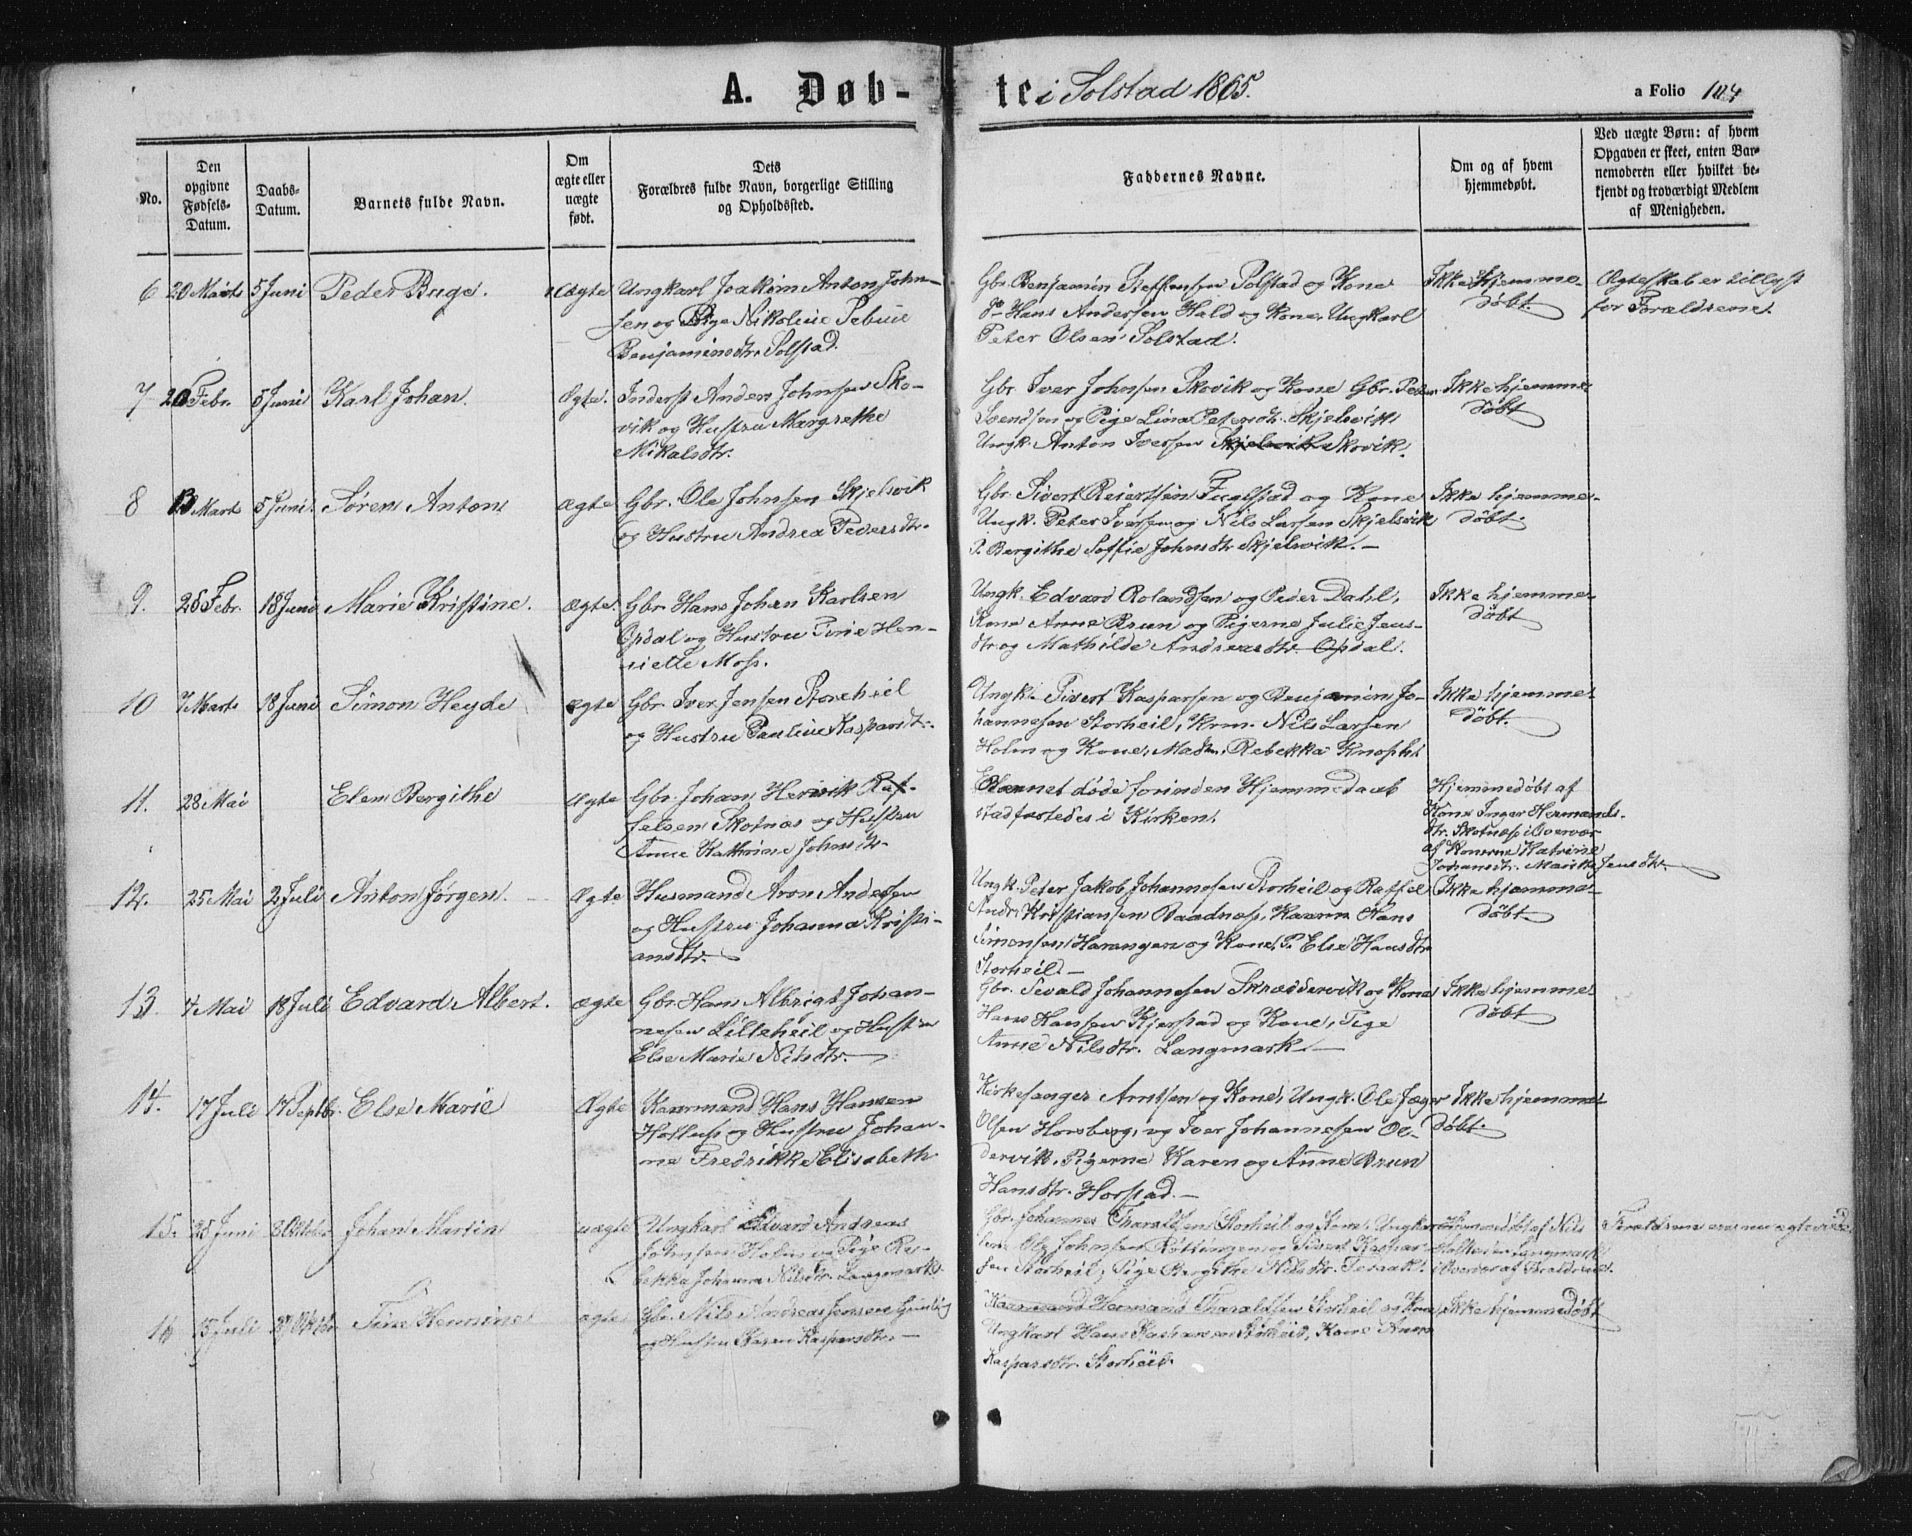 A. Døb-
te i Solstad 1865.
a Folio 104
No.
Den opgivne Fødsels-Datum.
Daabs-Datum.
Barnets fulde Navn.
Om ægte eller uægte født.
Dets Forældres fulde Navn, borgerlige Stilling og Opholdssted.
Faddernes Navne.
Om og af hvem hjemmedøbt.
Ved uægte Børn: af hvem Opgaven er skeet, enten Barnemoderen eller hvilket bekjendt og troværdigt Medlem af Menigheden.
6 20 Marts 5 Juni Peder Buge. Ægte
Ungkarl Joakim Anton John-
sen og Pige Nikoline
Benjaminsdtr. Solstad.
Gbr. Benjamin Steffensen Solstad og Kone
do Hans Andersen Hald og Kone, Ungkarl
Peter Olsen Solstad.
Ikke hjemme-
døbt.
Ægteskab er tillyst
for Forældrene.
7 20 Febr. 5 Juni Karl Johan. Ægte.
Inderst Anders Johnsen Sko-
vik og Hustru Margrethe
Nikalsdtr.
Gbr. Iver Johnsen Skovik og Kone Gbr. Peder
Svendsen og Pige Lina Petersdtr. Skjelsvik
Ungk. Anton Iversen Skjelsvik Skovik.
Ikke hjemme
døbt
8 13 Marts 5 Juni Søren Anton Ægte
Gbr. Ole Johnsen Skjelsvik
og Hustru Andrea Pedersdtr.
Gbr. Sivert Reiertsen Fuglstad og Kone
Ungk. Peter Iversen og Nils Larsen Skjelsvik
P. Bergithe Soffie Johnsdtr. Skjelsvik. —
Ikke hjemme-
døbt.
9. 26 Febr. 18 Juni Marie Kristine. Ægte.
Gbr. Hans Johan Karlsen
Opdal og Hustru Hen-
riette Moss.
Ungk. Edvard Rolandsen og Peder Dahl,
Kone Anne Brun og Pigerne Julie Jens-
dtr. og Mathilde Andreasdtr. Opdal.
Ikke hjemme-
døbt
10 7 Marts 18 Juni Simon Heyde ægte
Gbr. Iver Jensen Storheil
og Hustru Pauline Kaspersdtr.
Ungk. Sivert Kaspersen og Benjamin Jo-
hannesen Storheil, Krm. Nils Larsen
Holm og Kone, Madm. Rebekka Knoph.
Ikke hjemme
døbt.
11. 28 Mai Elen Bergithe Ægte
Gbr. Johan Henrik Raf-
felsen Skotnes og Hustru
Anne Kathrine Johnsdtr.
Barnet døde forinden Hjemmedaab
stadfæstedes i Kirken.
Hjemmedøbt af
Kone Inger Hermands-
dtr. Skotnes i Overvær
af Konerne Katrine
Johansdtr. Marith Jensdtr.
12. 25 Mai 2 Juli Anton Jørgen. Ægte
Husmand Aron Andersen
og Hustru Johanna Kristi-
ansdtr.
Ungk. Peter Jakob Johannesen Storheil og Raffel
Andr. Kristiansen Baadnes, Kaarm. Hans
Simonsen Harangen og Kone, P. Else Hansdtr.
Storheil. —
Ikke hjemme-
døbt
13. 7 Mai 18 Juli Edvard Albert. ægte
Gbr. Hans Albrigt Johan-
nesen Lilleheil og Hustru
Else Marie Nilsdtr.
Gbr. Sevald Johannesen Skrøddervik og Kone
Hans Hansen Kjerstad og Kone, Pige
Anne Nilsdtr. Langmark. —
Ikke hjemme
døbt
14. 17 Juli 17 Septbr. Else Marie Ægte
Kaarmand Hans Hansen
og Hustru Johan-
ne Fredrikke Elisabeth
Kirkesanger Arntsen og Kone, Ungk. Ole Jæger
Olsen Horsberg, og Iver Johannesen Od-
dervik. Pigerne Karen og Anne Brun
Hansdtr. Horstad. —
Ikke hjemme
døbt.
15. 25 Juni Johan Martin uægte
Ungkarl Edvard Andreas
Johnsen Holm og Pige Re-
bekka Johanna Nilsdtr. Langmark.
Gbr. Johannes Tharaldsen Storheil og Kone, Ungkar-
lene Ole Johnsen Røttingen og Sivert Kasper-
sen Storheil, Pige Bergithe Nilsdtr.
Hjemmedøbt af Nils
Langmark
i Overvær af Forældrene.
Forældrene
16 15 Juli Tine Hennine ægte
Gbr. Nils Andreas Jensen
og Hustru Karen Kaspersdtr. —
Kaarmand Hermand Tharaldsen Storheil og Kone,
Ungkarl Hans Storheil, Kone Anne
Kaspersdtr. Storheil.
Ikke hjemmedøbt